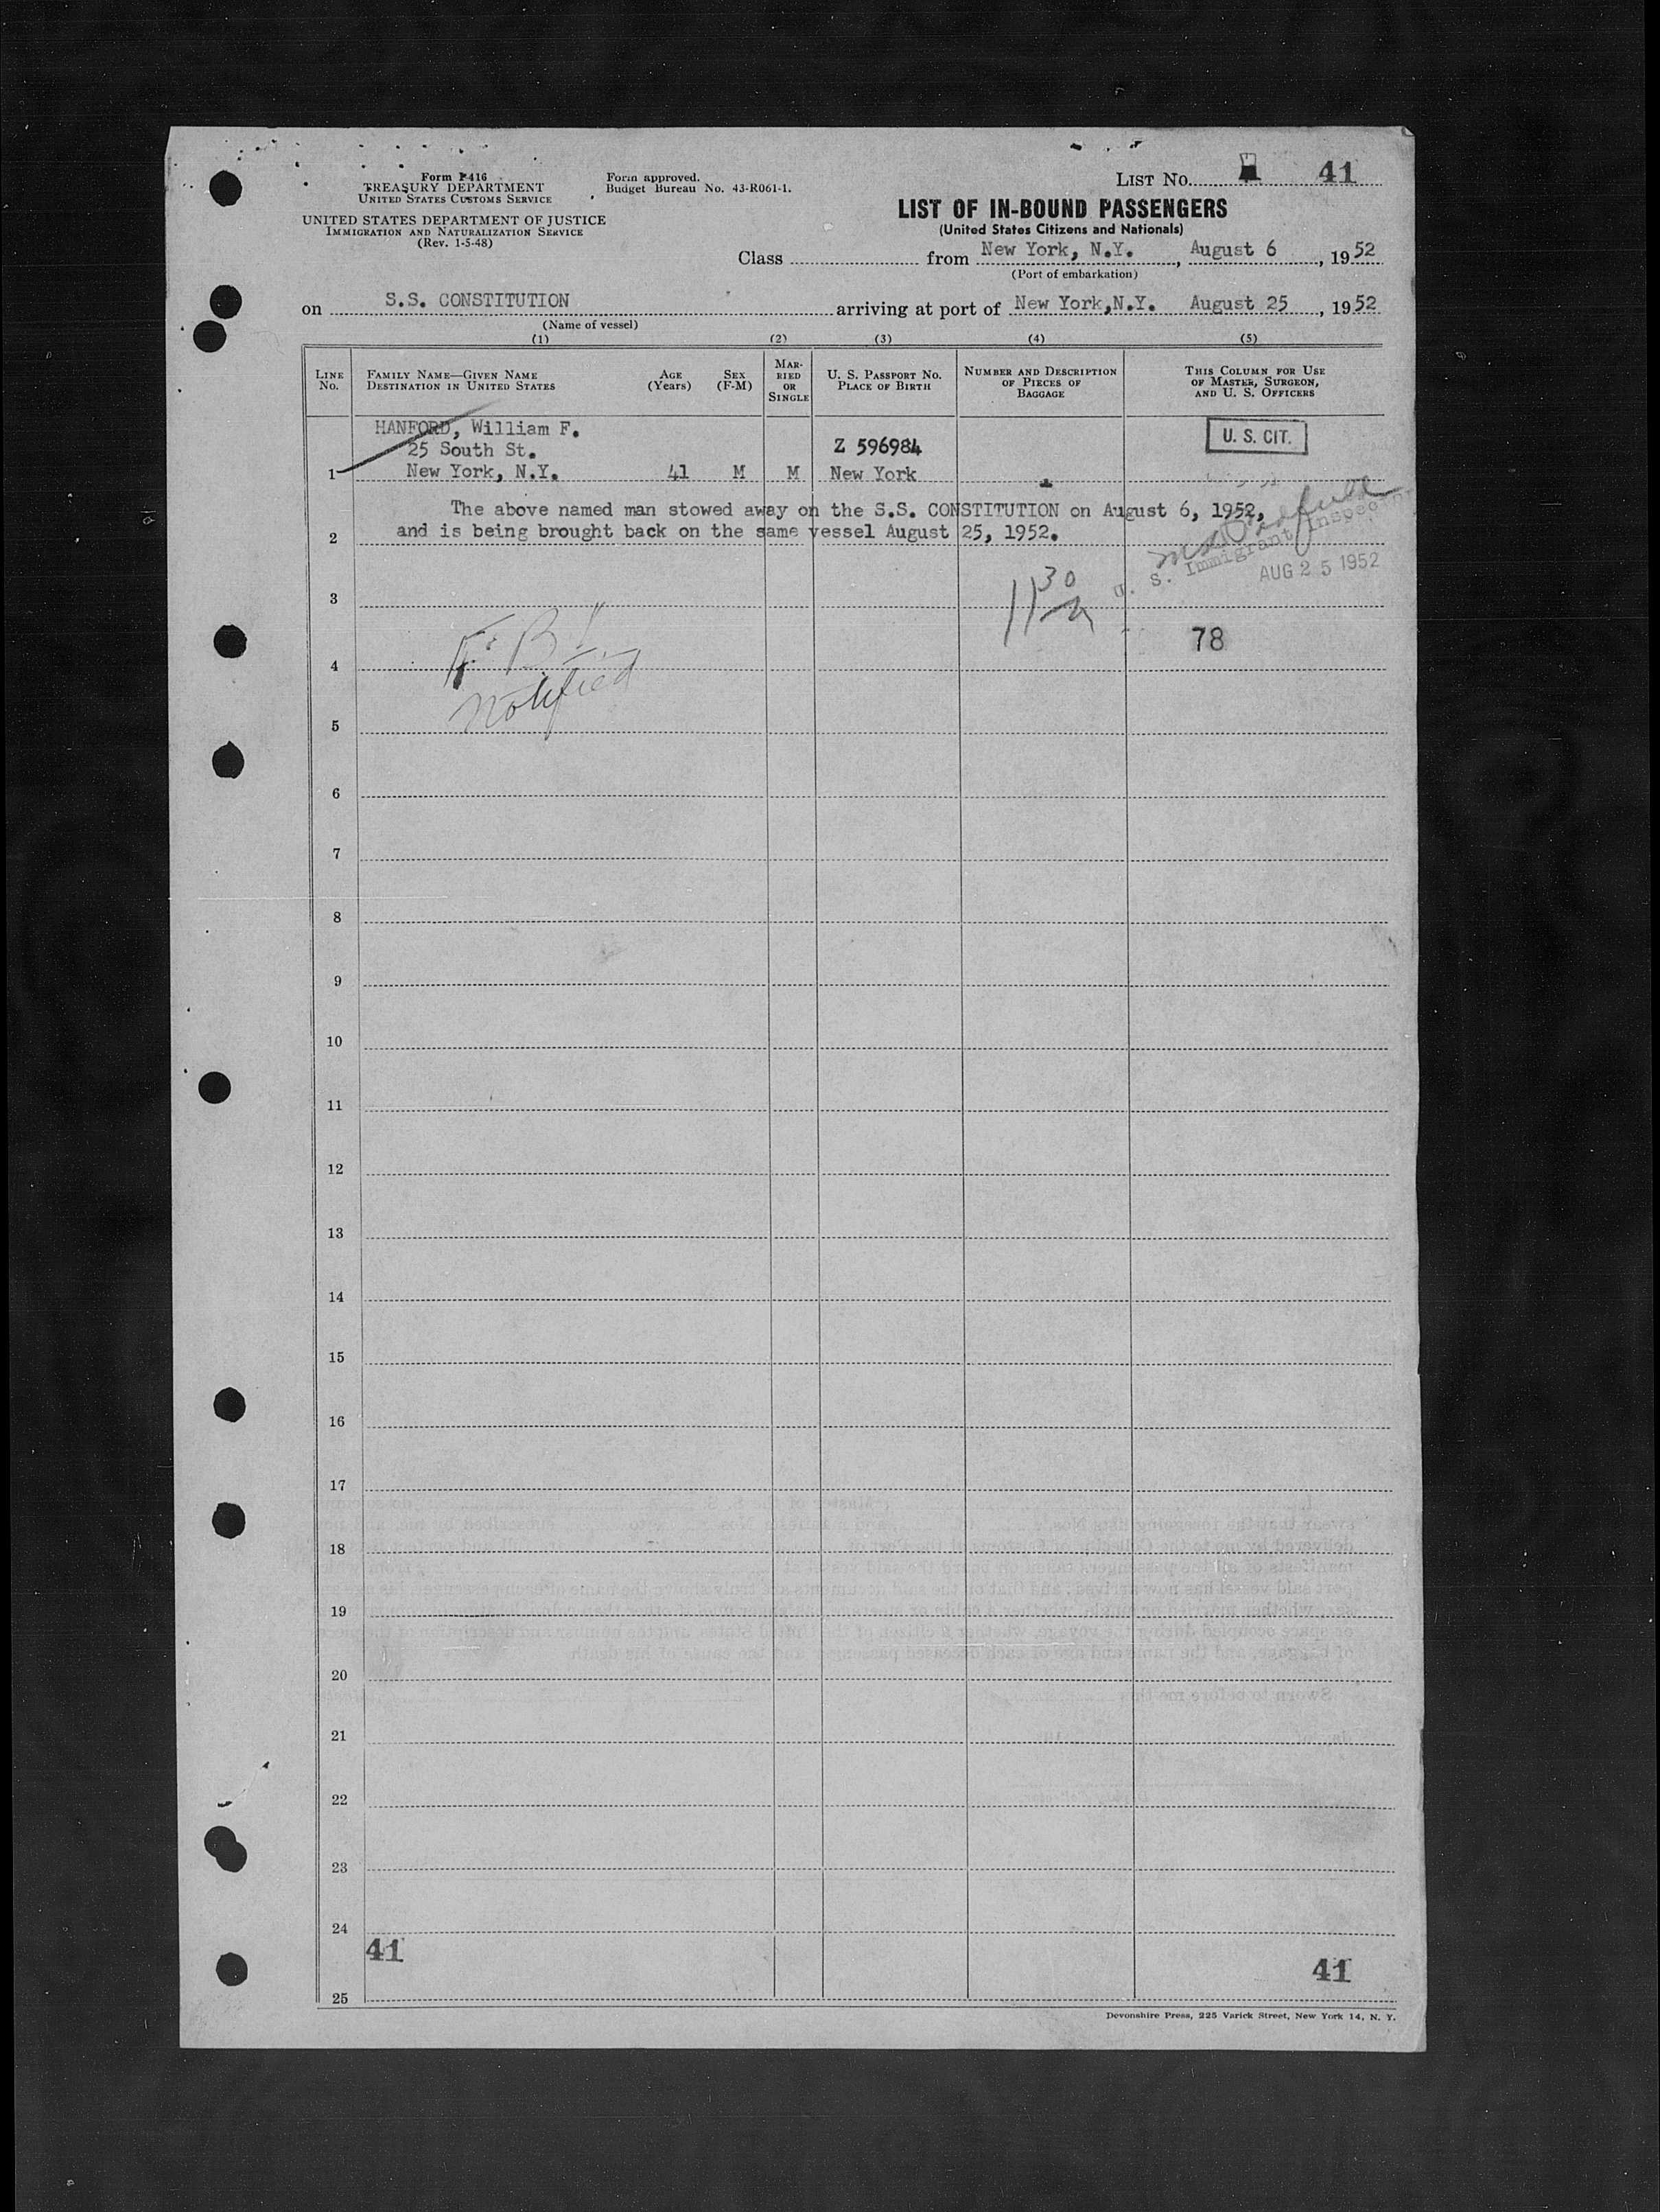 Form I-416
TREASURY DEPARTMENT
UNITED STATES CUSTOMS SERVICE
UNITED STATES DEPARTMENT OF JUSTICE
IMMIGRATION AND NATURALIZATION SERVICE
(Rev. 1-5-48)
Form approved.
Budget Bureau No. 43-R061-1.
LIST NO. 41
LIST OF IN-BOUND PASSENGERS
(United States Citizens and Nationals)
Class from New York, N.Y., August 6, 1952
(Port of embarkation)
on S.S. CONSTITUTION arriving at port of New York,N.Y. August 25, 1952
(Name of vessel)
(1) (2) (3) (4) (5)
LINE No.
FAMILY NAME—GIVEN NAME
DESTINATION IN UNITED STATES
AGE
(Years)
SEX
(F-M)
MAR-
RIED
OR
SINGLE
U. S. PASSPORT NO.
PLACE OF BIRTH
NUMBER AND DESCRIPTION
OF PIECES OF
BAGGAGE
THIS COLUMN FOR USE
OF MASTER, SURGEON,
AND U. S. OFFICERS
HANFORD, William F.
25 South St. Z 596984 U. S. CIT.
1 New York, N.Y. 41 M M New York
The above named man stowed away on the S.S. CONSTITUTION on August 6, 1952,
2 and is being brought back on the same vessel August 25, 1952.
U. S. Immigrant Inspector
AUG 25 1952
11 30
3
78
F.B.I.
4
Notified
5
6
7
8
9
10
11
12
13
14
15
16
17
18
19
20
21
22
23
24
41 41
25
Devonshire Press, 225 Varick Street, New York 14, N. Y.